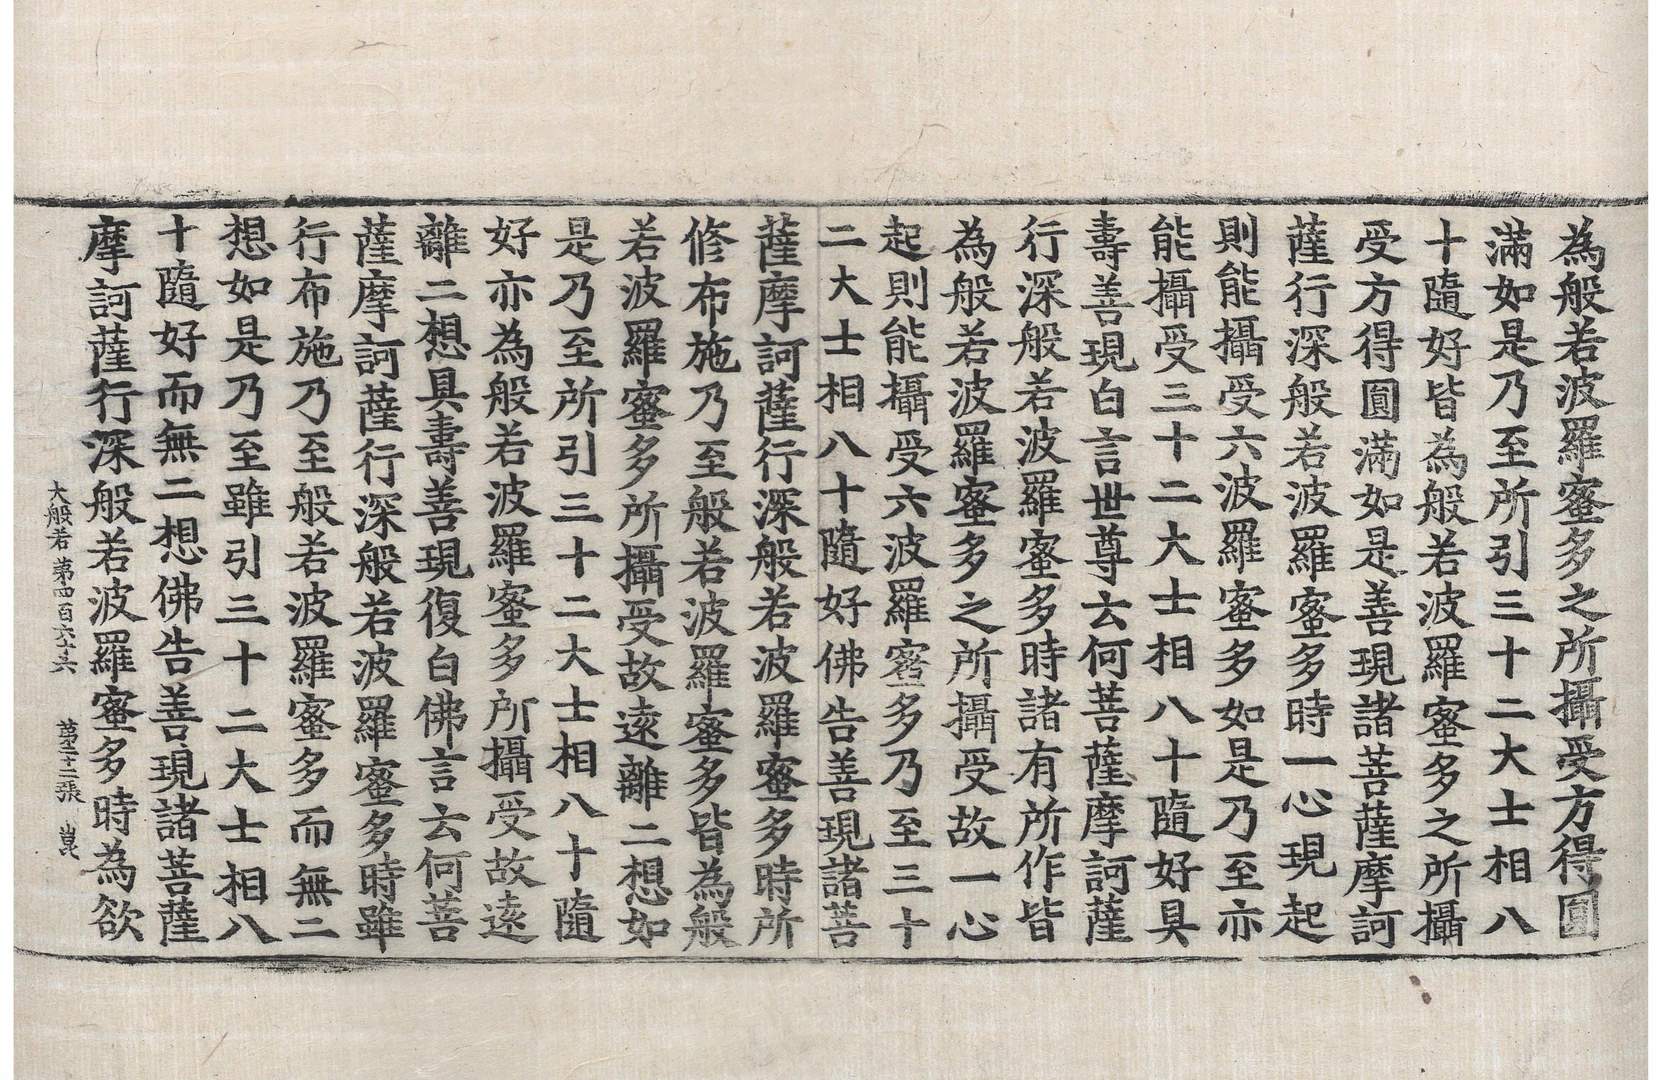 為般若波羅蜜多之所攝受方得圓
滿如是乃至所引三十二大士相八
十隨好皆為般若波羅蜜多之所攝
受方得圓滿如是善現諸菩薩摩訶
薩行深般若波羅蜜多時一心現起
則能攝受六波羅蜜多如是乃至亦
能攝受三十二大士相八十隨好具
壽善現白言世尊云何菩薩摩訶薩
行深般若波羅蜜多時諸有所作皆
為般若波羅蜜多之所攝受故一心
起則能攝受六波羅蜜多乃至三十
二大士相八十隨好佛告善現諸菩
薩摩訶薩行深般若波羅蜜多時所
修布施乃至般若波羅蜜多皆為般
若波羅蜜多所攝受故遠離二想如
是乃至所引三十二大士相八十隨
好亦為般若波羅蜜多所攝受故遠
離二想具壽善現復白佛言云何菩
薩摩訶薩行深般若波羅蜜多時雖
行布施乃至般若波羅蜜多而無二
想如是乃至雖引三十二大士相八
十隨好而無二想佛告善現諸菩薩
摩訶薩行深般若波羅蜜多時為欲
大般若 第四百六十六 張 崑